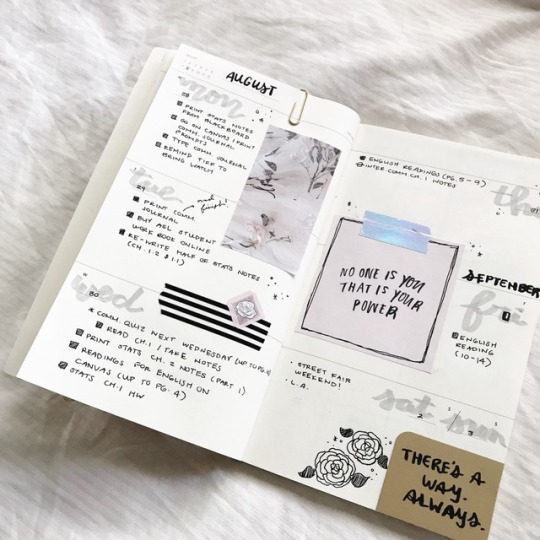 AUGUST
mon
28
PRINT STATS NOTES
FROM BLACKBOARD
GO ON CANVAS & PRINT
COMM. JOURNAL
PROMPTS
TYPE COMM. JOURNAL
REMIND TIFF TO
BRING WATCH
tue
29
PRINT COMM.
JOURNAL
BUY ASL STUDENT
WORK BOOK ONLINE
RE-WRITE HALF OF STATS NOTES
(CH. 1.2 & 1.1)
wed
30
* COMM. QUIZ NEXT WEDNESDAY (UP TO PG
READ CH. 1 / TAKE NOTES
PRINT STATS CH. 2 NOTES (PART 1)
READINGS FOR ENGLISH ON
CANVAS (UP TO PG. 4)
STATS CH. 1 HW
ENGLISH READINGS (PG. 5-9)
INTER COMM. CH. 1 NOTES
thu
NO ONE IS YOU
THAT IS YOUR
POWER
SEPTEMBER
fri
1
ENGLISH
READING
(10-14)
STREET FAIR
WEEKEND!
L.A.
sat / sun
2
3
THERE'S A
WAY.
ALWAYS.